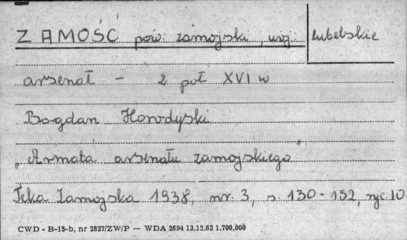 ZAMOŚĆ pow. zamojski, woj.: lubelskie
arsenał - 2 poł XVI w
Bogdan Horodyski
"Armata arsenału zamojskiego"
Teka Zamojska 1938, nr. 3, s. 130-152, ryc. 10
CWD - B-15-b, nr 2827/ZW/P — WDA 2694 13.12.62 1.700,000